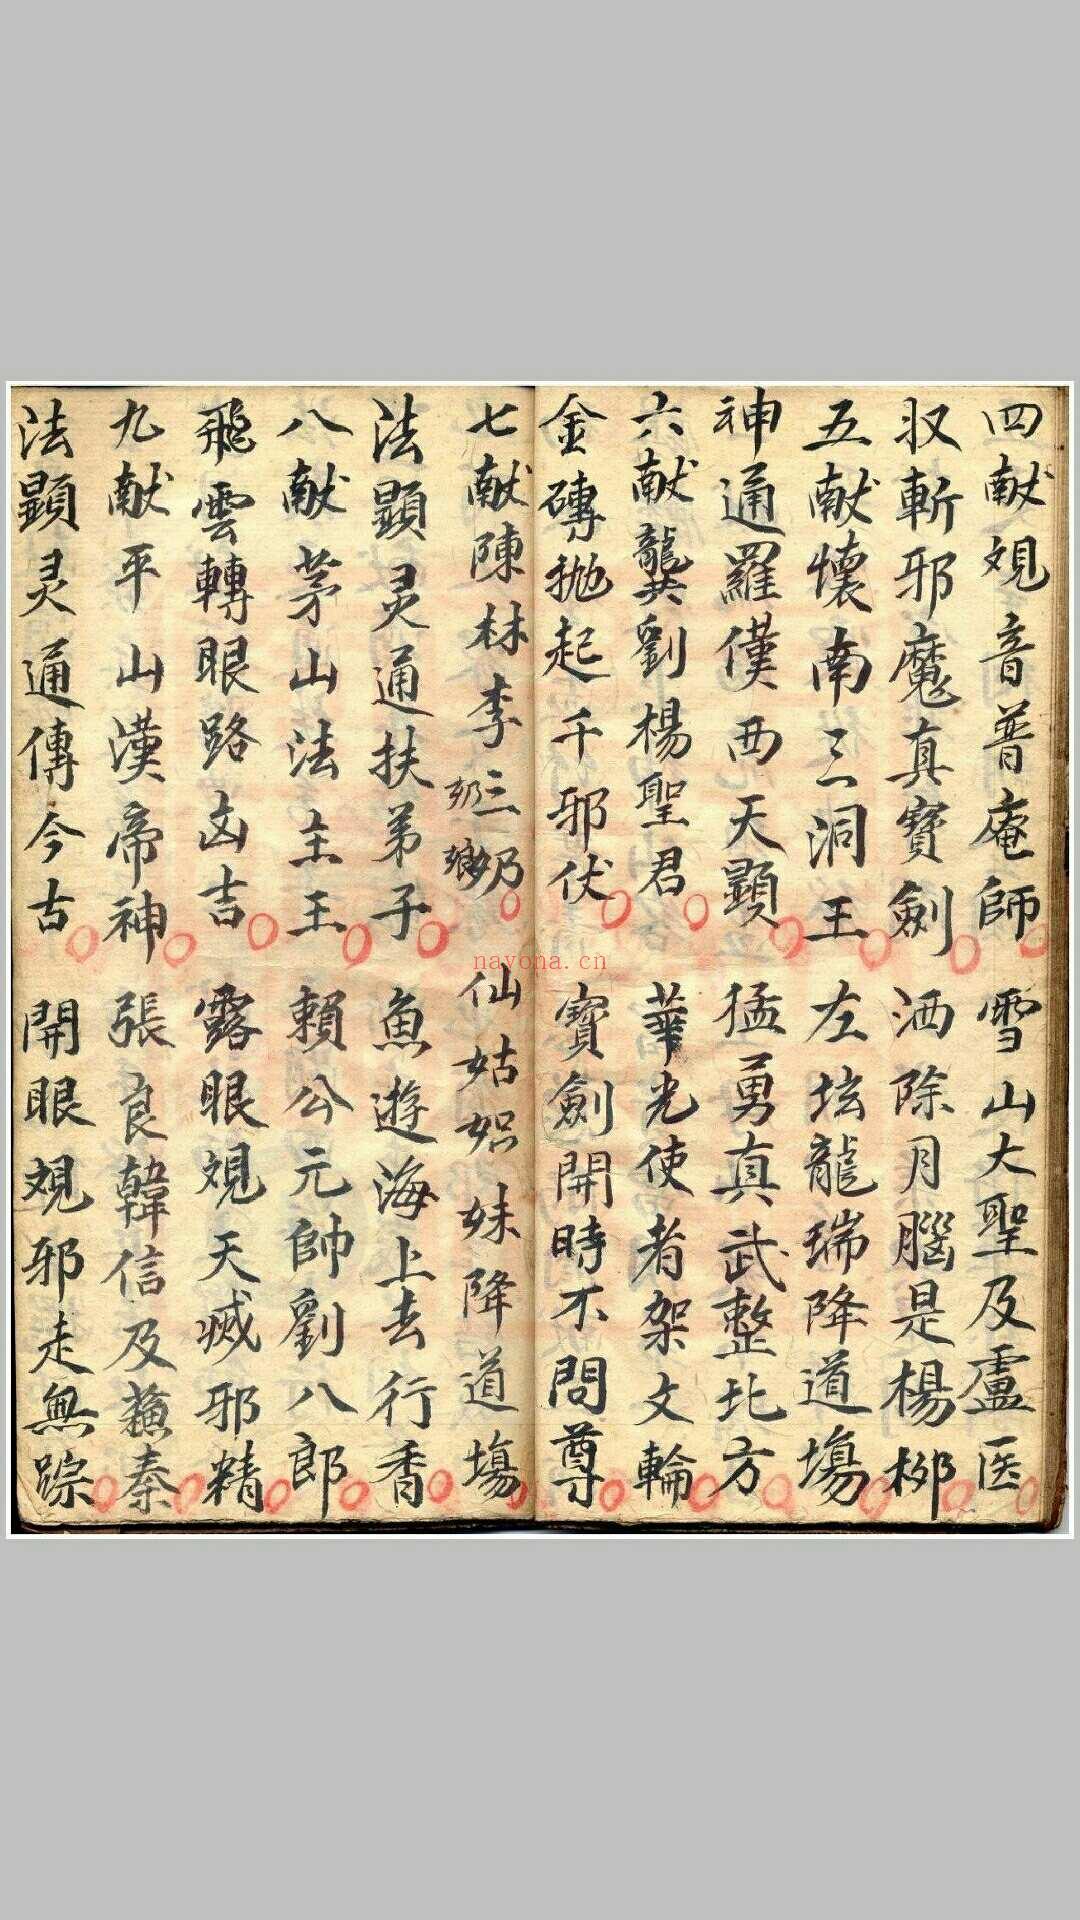 四献覌音普庵師　雪山大聖及盧医
収斬邪魔真寳劍　洒除月腦是楊柳
五献懷南三洞王　左坛龍瑞降道塲
神通羅僅西天顕　猛勇真武整北方
六献龔劉楊聖君　華光使者架文輪
金磚抛起千邪伏　寳劍開時不問尊
七献陳林李三奶　仙姑妱妹降道塲
奶娘
法顕灵通扶弟子　魚遊海上去行香
八献茅山法主王　頼公元帥劉八郎
飛雲轉眼路凶吉　露眼覌天滅邪精
九献平山漢帝神　張良韓信及蘓秦
法顕灵通傳今古　開眼覌邪走無踪
nayona.cn